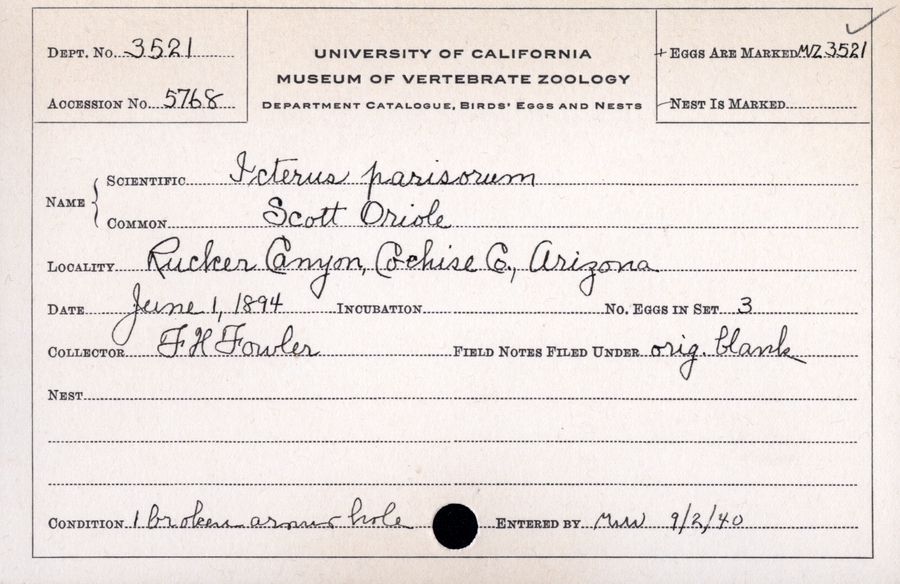 DEPT. No. 3521
ACCESSION No. 5768
UNIVERSITY OF CALIFORNIA
MUSEUM OF VERTEBRATE ZOOLOGY
DEPARTMENT CATALOGUE, BIRDS' EGGS AND NESTS
+ EGGS ARE MARKED MVZ 3521
NEST IS MARKED
NAME { SCIENTIFIC Icterus parisorum
COMMON Scott Oriole
LOCALITY Rucker Canyon, Cochise Co., Arizona
DATE June 1, 1894 INCUBATION No. EGGS IN SET 3
COLLECTOR F H Fowler FIELD NOTES FILED UNDER orig. blank
NEST
CONDITION 1 broken hole ENTERED BY 9/2/40